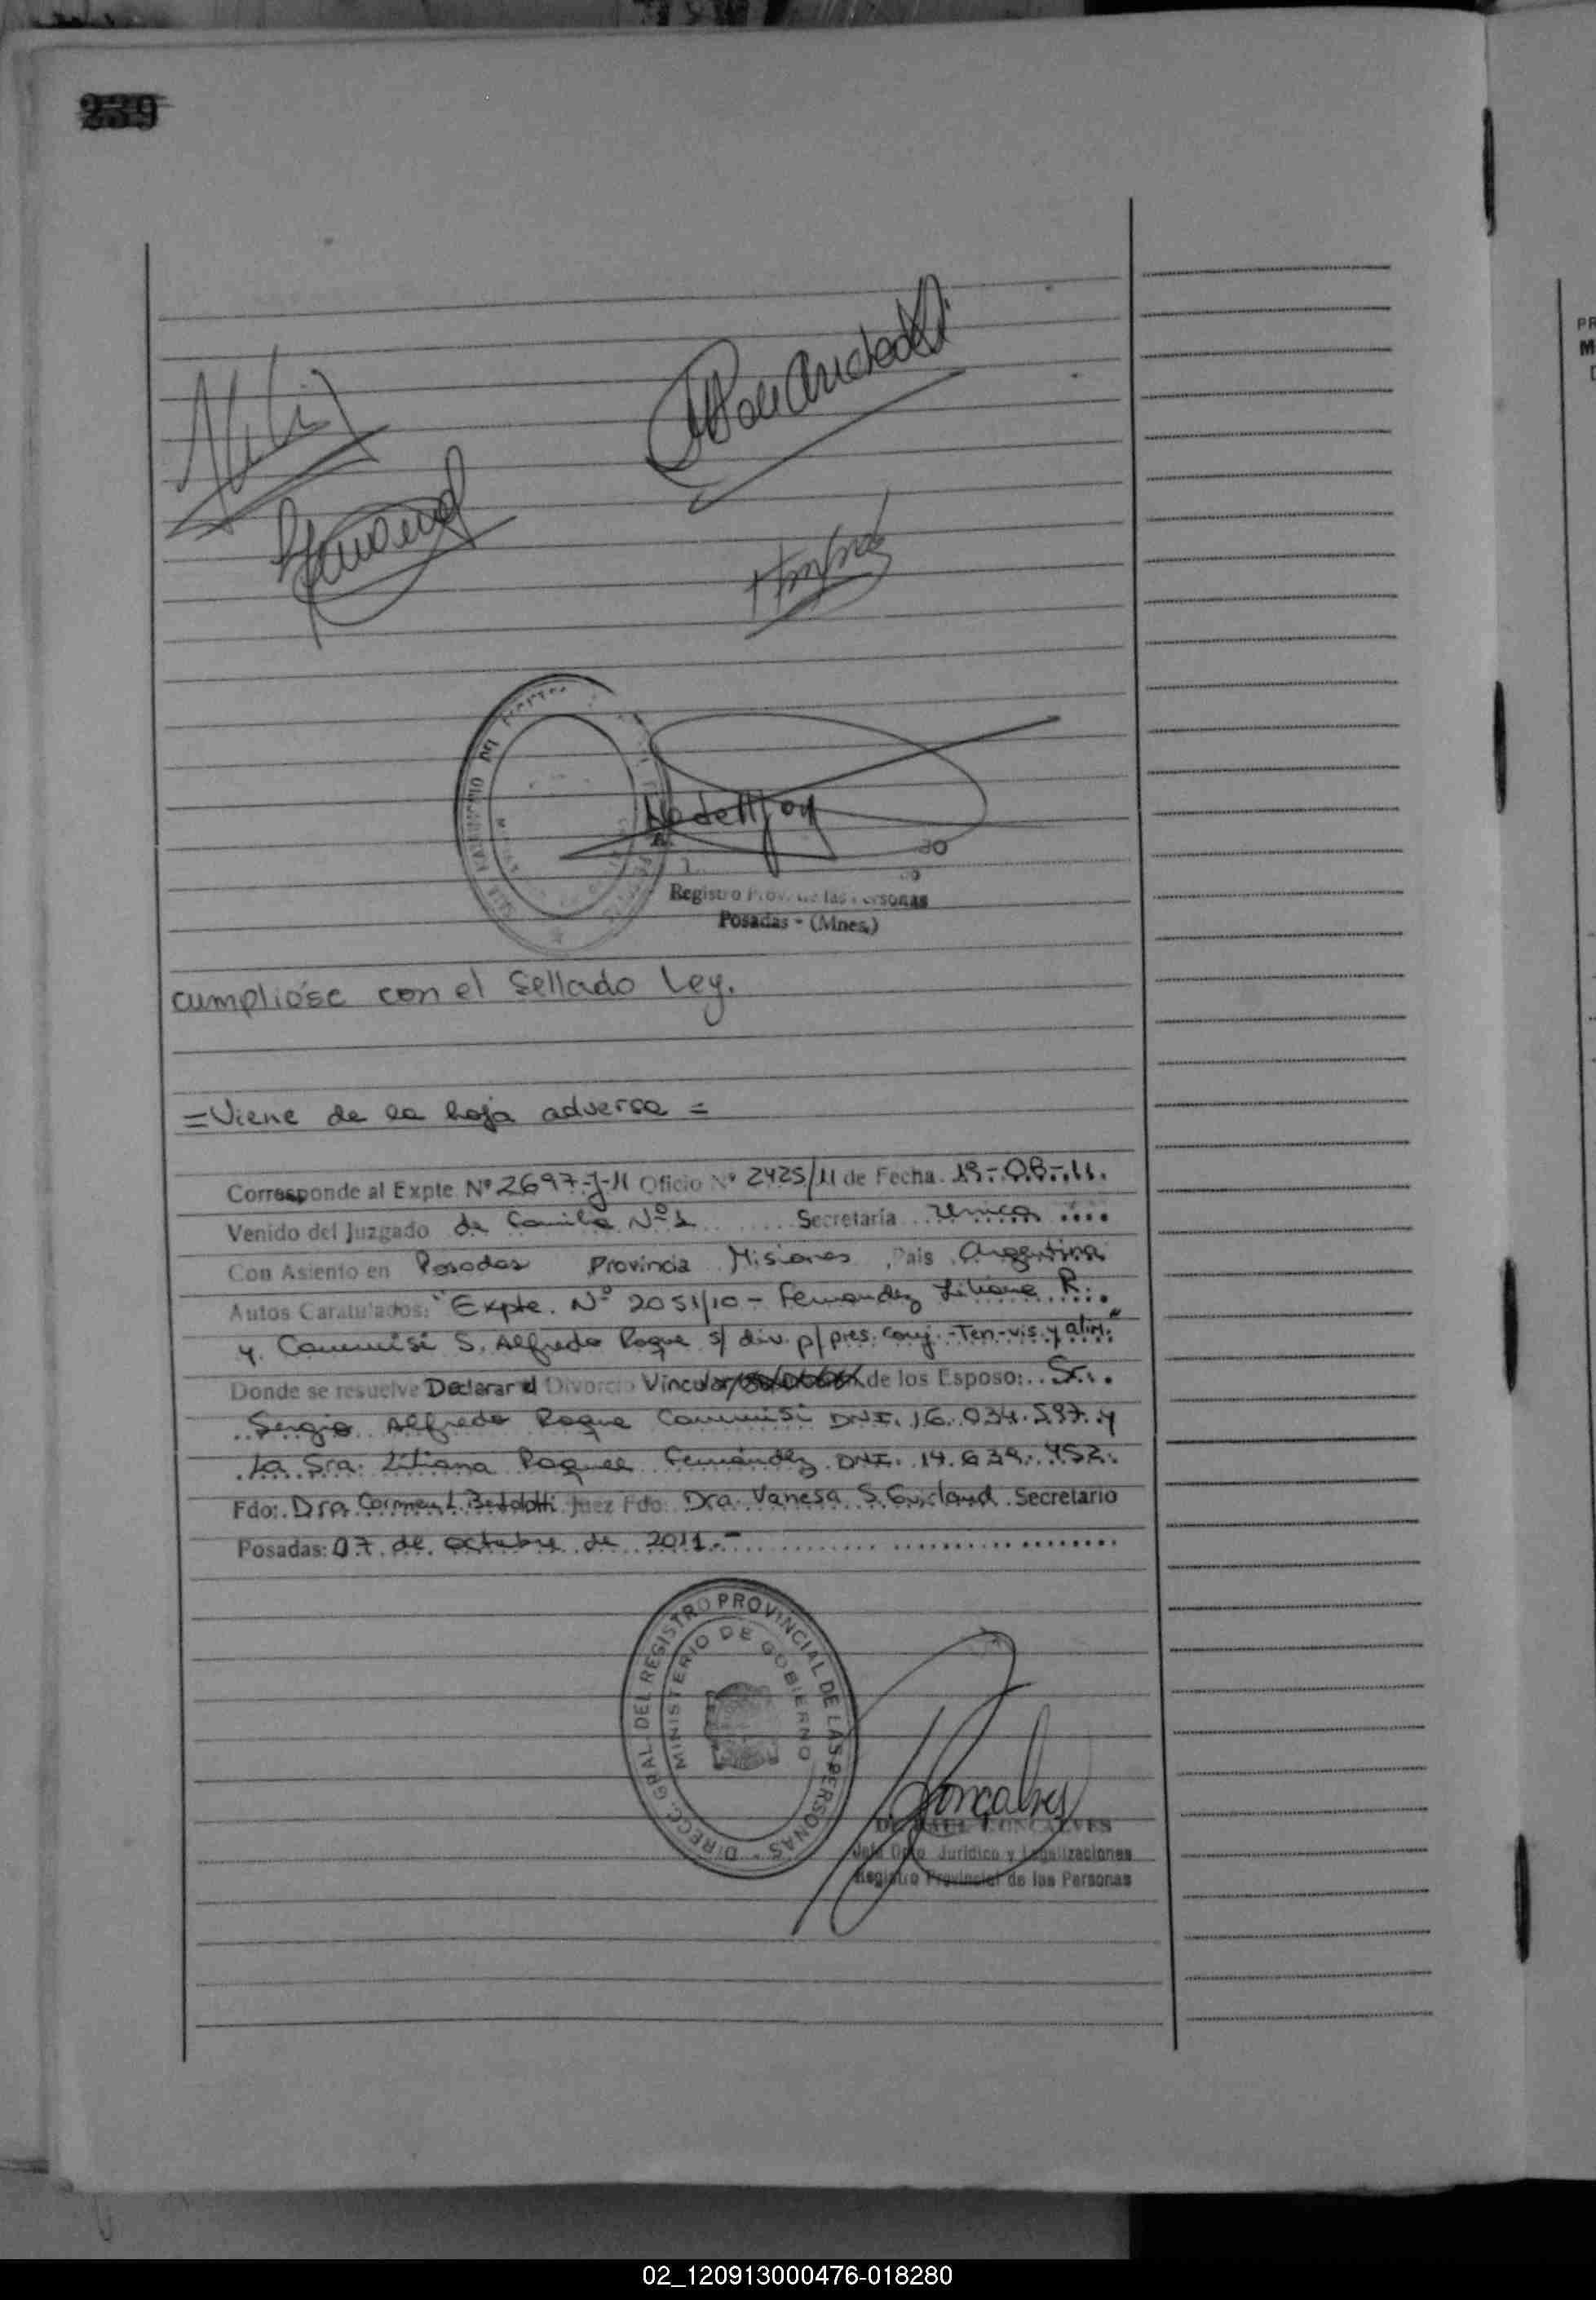 239
Registro Prov. de las Personas
Posadas - (Mnes.)
cumplióse con el Sellado Ley.
= Viene de la hoja adversa =
Corresponde al Expte. Nº 2697-J-11 Oficio Nº 2425/11 de Fecha 19-08-11.
Venido del Juzgado de Familia Nº 1 Secretaría Unica
Con Asiento en Posadas Provincia Misiones País Argentina
Autos Caratulados: "Expte. Nº 2051/10 - Fernandez Liliana R.
y S. Alfredo Roque s/ div. p/ pres. conj. - Ten-vis. y alim."
Donde se resuelve Declarar el Divorcio Vincular de los Esposo: Sr.
Sergio Alfredo Roque DNI. 16.034.597 y
La Sra. Liliana Raquel Fernández DNI. 14.639.452.
Fdo: Dra. Carmen L. Juez Fdo: Dra. Vanesa S. Secretario
Posadas: 07 de octubre de 2011.-
DIRECC. GRAL. DEL REGISTRO PROVINCIAL DE LAS PERSONAS
MINISTERIO DE GOBIERNO
Gonçalves
Dr. RAUL GONCALVES
Jefe Dpto. Jurídico y Legalizaciones
Registro Provincial de las Personas
PR
M
D
02_120913000476-018280